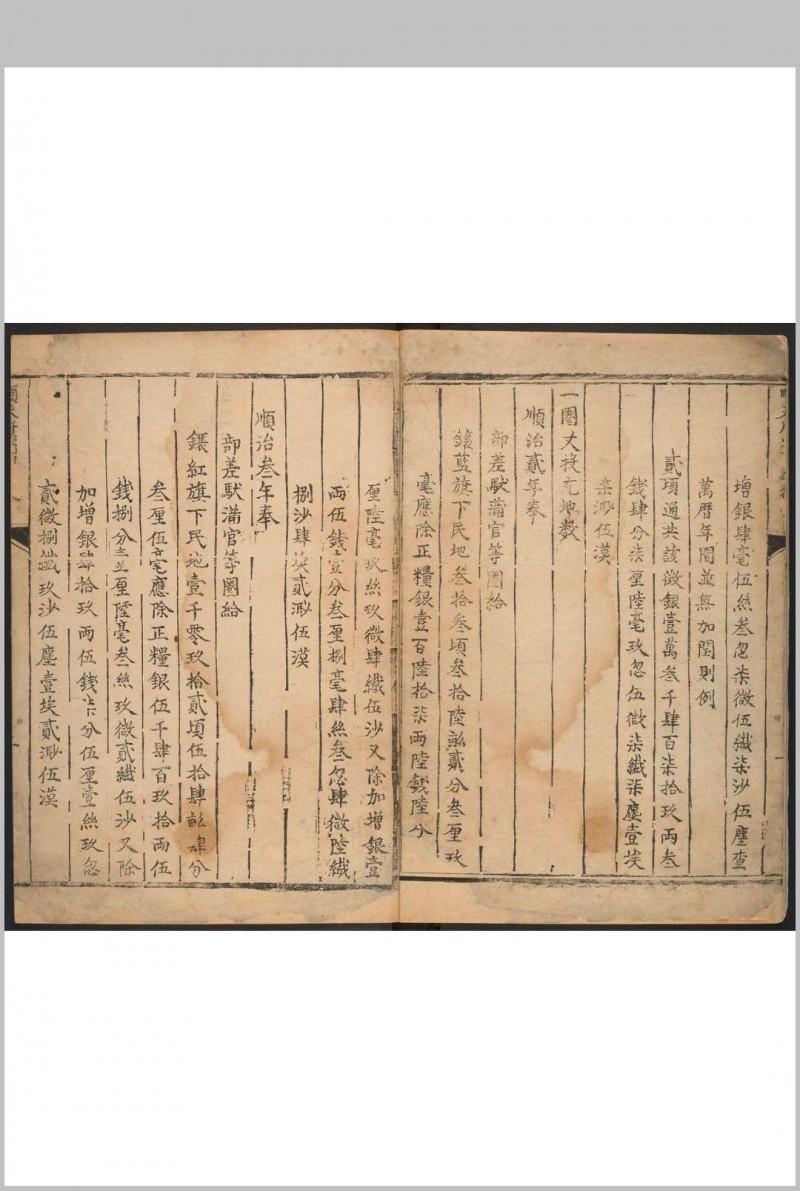 增銀肆毫伍絲叁忽柒微伍纖柒沙伍塵查
萬曆年間並無加閏則例
貳項通共該徵銀壹萬叁千肆百柒拾玖兩叁
錢肆分柒厘陸毫玖忽伍微柒纖柒塵壹埃
柒渺伍漠
一圈丈投充地數
順治貳年奉
部差馱滿官等圈給
鑲藍旗下民地叁拾叁頃叁拾陸畝貳分叁厘玖
毫應除正糧銀壹百陸拾柒兩陸錢陸分
厘陸毫玖絲玖微肆纖伍沙又除加增銀壹
兩伍錢壹分叁厘捌毫肆絲叁忽肆微陸纖
捌沙肆埃貳渺伍漠
順治叁年奉
部差馱滿官等圈給
鑲紅旗下民地壹千零玖拾貳頃伍拾肆畝肆分
叁厘伍毫應除正糧銀伍千肆百玖拾兩伍
錢捌分壹厘陸毫叁絲玖微貳纖伍沙又除
加增銀肆拾玖兩伍錢柒分伍厘壹絲玖忽
貳微捌纖玖沙伍塵壹埃貳渺伍漠